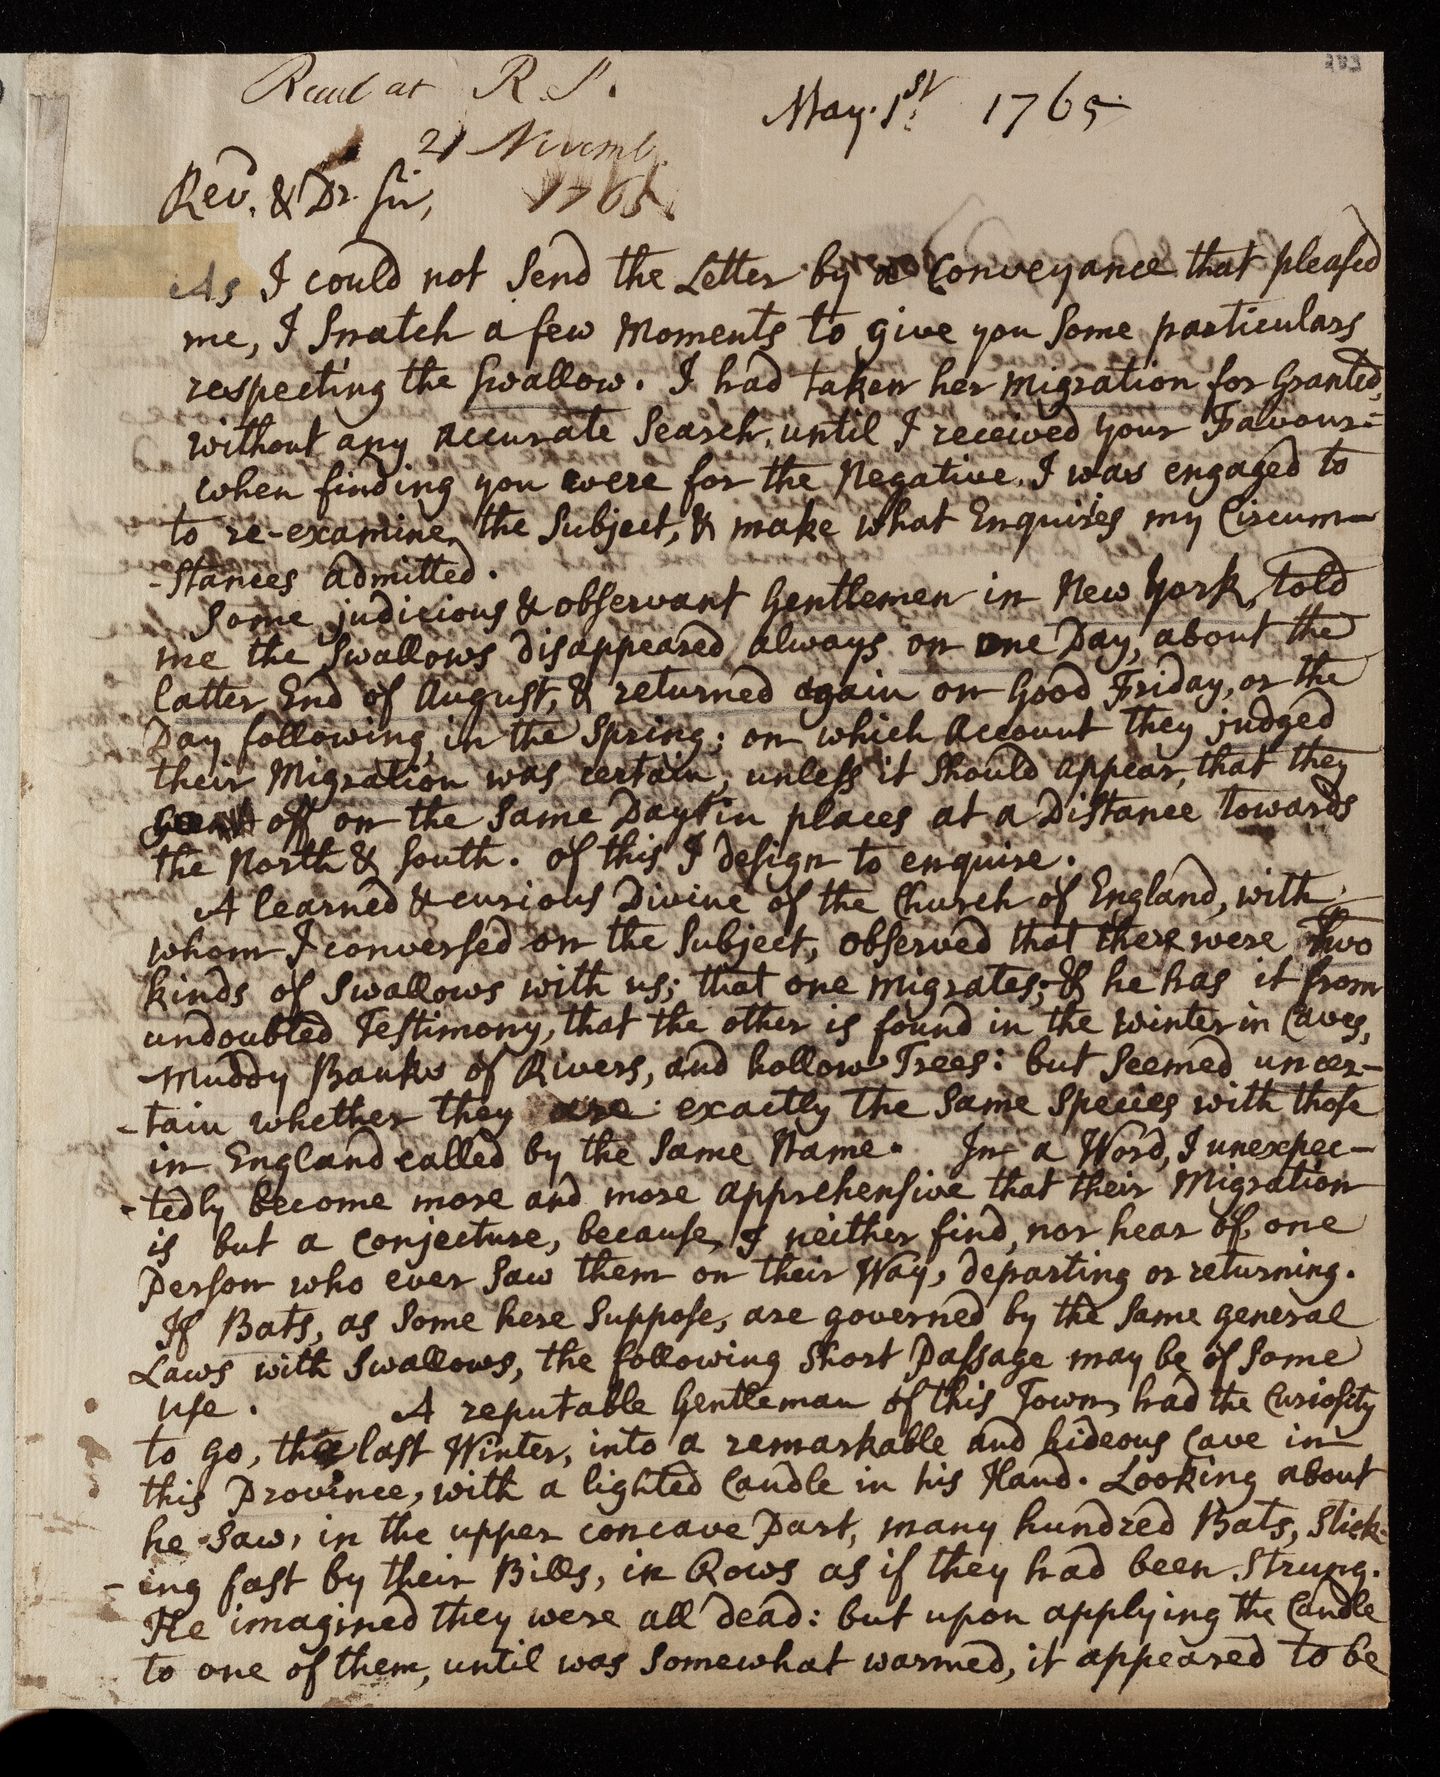 Read at R.S.
21 Novemb.
1765.
May. 1st 1765.
Revd. & Dr. Sir,
As I could not Send the Letter by a Conveyance that pleased
me, I Snatch a few Moments to give you Some particulars
respecting the Swallow. I had taken her Migration for Granted,
without any accurate Search, until I received your Favour:
when finding you were for the Negative. I was engaged to
to re-examine the Subject, & make what Enquiries my Circum-
-stances admitted.
Some judicious & observant Gentlemen in New York, told
me the Swallows disappeared always on one Day, about the
latter End of August, & returned again on Good Friday, or the
Day following in the Spring; on which Account they judged
their Migration was certain, unless it Should appear, that they
went off on the Same Day in places at a Distance towards
the North & South. Of this I design to enquire.
A learned & curious Divine of the Church of England, with
whom I conversed on the Subject, observed that there were Two
kinds of Swallows with us; that one Migrates; & he has it from
undoubted Testimony, that the other is found in the Winter in Caves,
Muddy Banks of Rivers, and hollow Trees: but Seemed uncer-
-tain whether they are exactly the Same Species with those
in England called by the Same Name. In a Word, I unexpec-
-tedly become more and more apprehensive that their Migration
is but a Conjecture, because I neither find, nor hear of, one
Person who ever Saw them on their Way, departing or returning.
If Bats, as Some here Suppose, are governed by the Same general
Laws with Swallows, the following Short Passage may be of Some
use. A reputable Gentleman of this Town, had the Curiosity
to go, the last Winter, into a remarkable and hideous Cave in
this Province, with a lighted Candle in his Hand. Looking about
he Saw, in the upper concave Part, many hundred Bats, Stick-
-ing fast by their Bills, in Rows as if they had been Strung.
He imagined they were all dead: but upon applying the Candle
to one of them, until was Somewhat warmed, it appeared to be